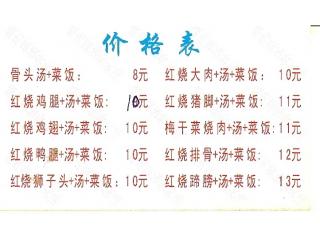 价格表
骨头汤+菜饭： 8元 红烧大肉+汤+菜饭： 10元
红烧鸡腿+汤+菜饭: 10元 红烧猪脚+汤+菜饭: 11元
红烧鸡翅+汤+菜饭: 10元 梅干菜烧肉+汤+菜饭: 11元
红烧鸭腿+汤+菜饭: 10元 红烧排骨+汤+菜饭: 12元
红烧狮子头+汤+菜饭: 10元 红烧蹄膀+汤+菜饭: 13元